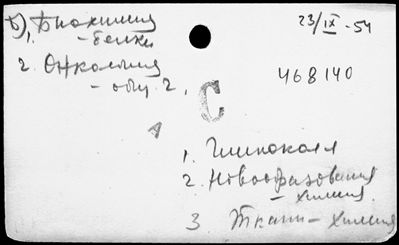 Б) 1. Биохимия
- белки
23/IX-54
2. Онкология
- общ. 2,
468140
С
1. Гликокол
2. Новообразования
- химия.
3 Ткани - химия